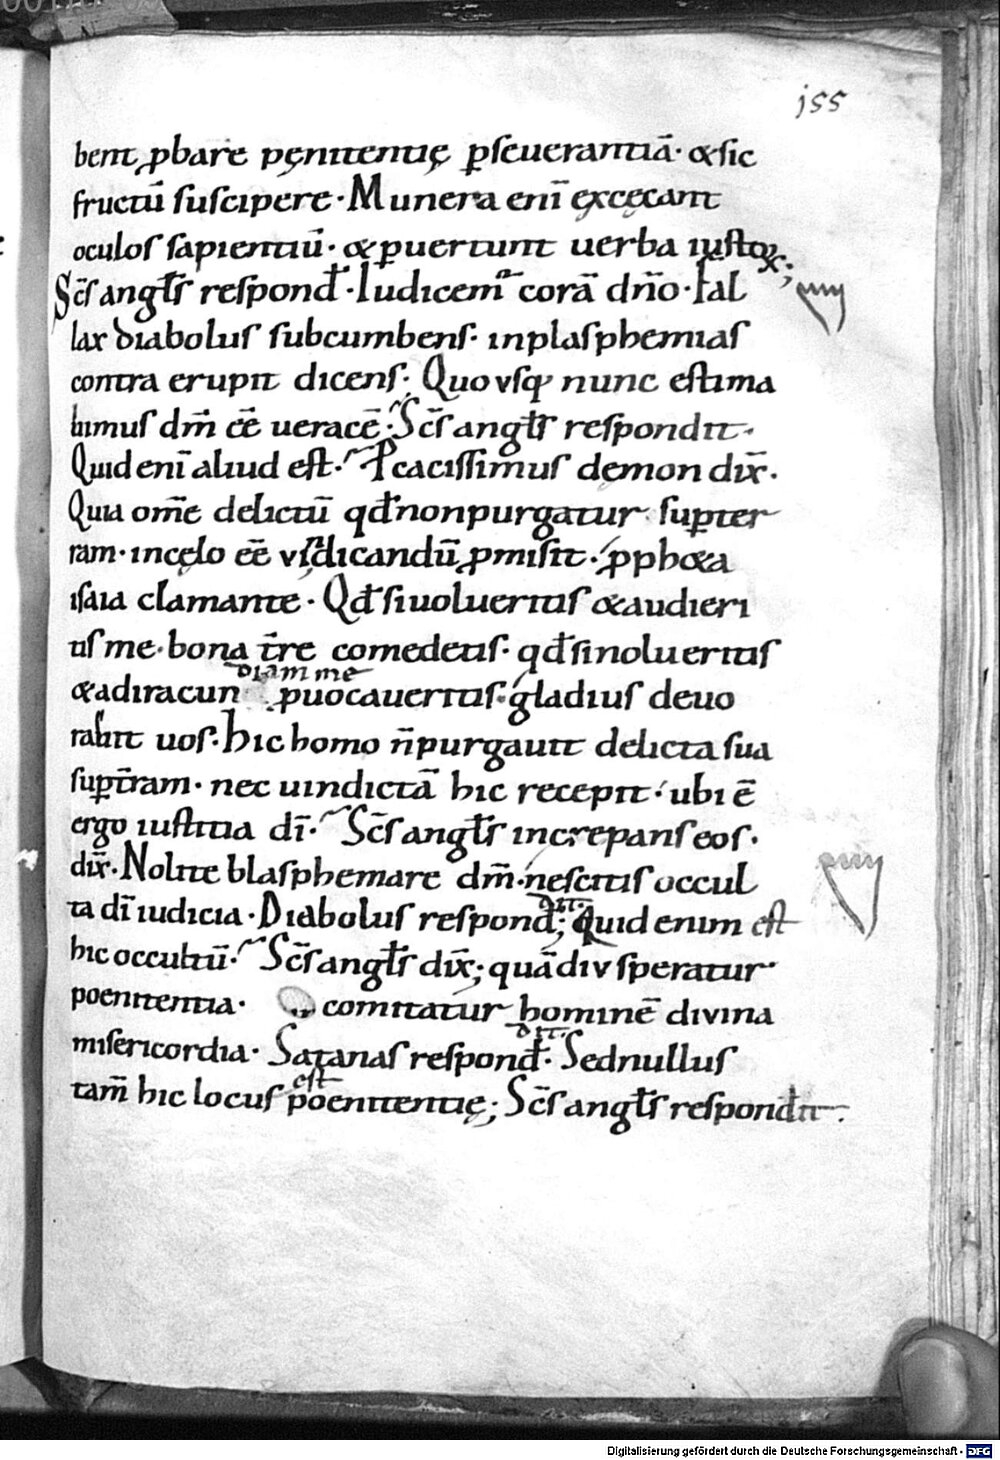 j55
bent ꝓbare pęnitentię ꝑseuerantiā· & sic
fructū suscipere· Munera enī excęcant
oculos sapientiū· & ꝑuertunt uerba iustoꝝ;
Sc̄s angl̄s respond̄· Iudicem corā dn̄o· Fal
lax diabolus subcumbens· inplasphemias
contra erupit dicens; Quo vsq; nunc estima
bimus dm̄ ēē ueracē· Sc̄s angl̄s respondit·
Quid enī aliud est· Procacissimus demon dix̄·
Quia om̄e delictū qd̄ non purgatur suꝑ ter
ram· in cęlo ēē vīdicandū ꝓmisit· ꝓph&a
isaia clamante· Qd̄ si uolueritis & audieri
tis me· bona t̄re comedetis· qd̄ si nolueritis
diam me
& ad iracun ꝓuocaueritis· gladius deuo
rabit uos· Hic homo n̄ purgauit delicta sua
suꝑ t̄ram· nec uindictā hic recepit· ubi ē
ergo iustitia dī· Sc̄s angl̄s increpans eos·
dix̄· Nolite blasphemare dm̄· nescitis occul
ta dī iudicia· Diabolus respond̄; Quid enim est
hic occultū· Sc̄s angl̄s dix̄; quādiv speratur
poenitentia· comitatur hominē divina
misericordia· Satanas respond̄· Sed nullus
est
tam̄ hic locus poenitentię; Sc̄s angl̄s respondit·
Digitalisierung gefördert durch die Deutsche Forschungsgemeinschaft - DFG